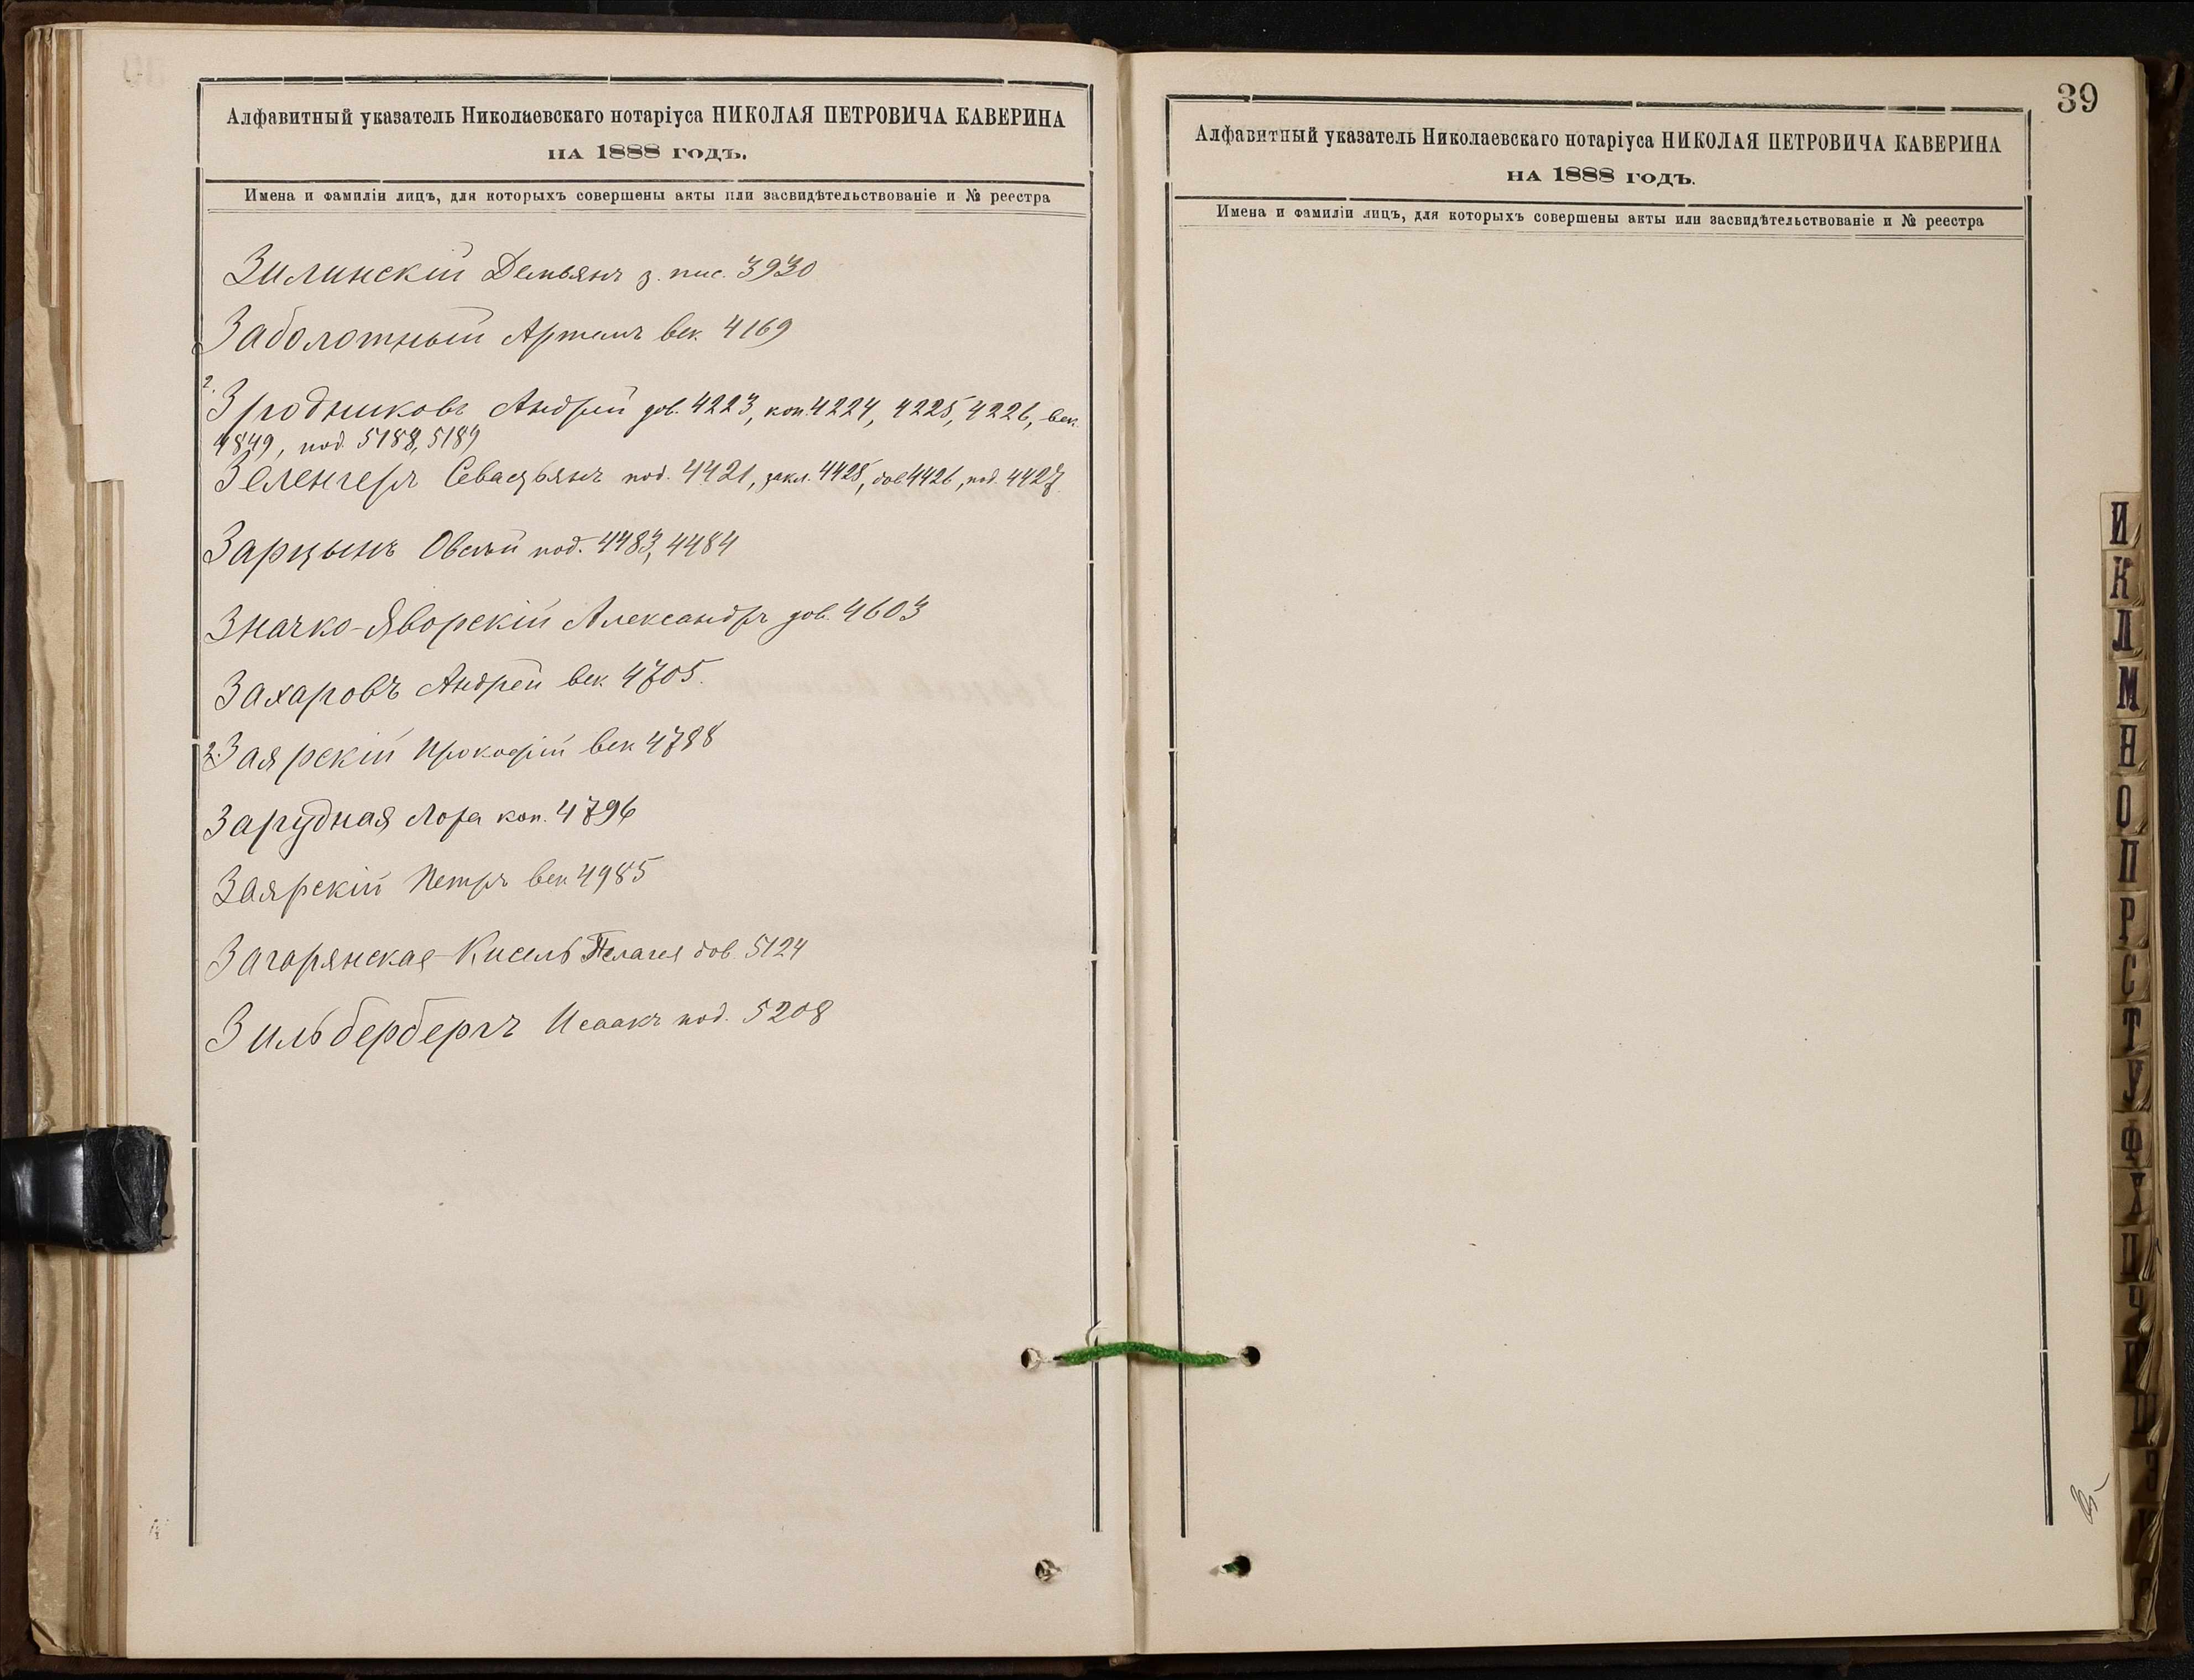 Алфавитный указатель Николаевскаго нотаріуса НИКОЛАЯ ПЕТРОВИЧА КАВЕРИНА
НА 1888 ГОДЪ.
Имена и фамиліи лицъ, для которыхъ совершены акты или засвидѣтельствованіе и № реестра
Зилинскій Демьянъ з. пис. 3930
Заболотный Артемъ век. 4169
2. Зродниковъ Андрей дов. 4223, коп. 4224, 4225, 4226, век.
4849, под. 5188, 5189
Зеленгеръ Севастьянъ под. 4421, закл. 4425, дов 4426, под. 4427.
Зарцынъ Овсѣй под. 4483, 4484
Значко-Яворскій Александръ дов. 4603
Захаровъ Андрей век. 4705.
2. Заярскій Прокофій век 4788
Зарудная Лора коп. 4796
Заярскій Петръ век 4985
Загорянская-Кисель Пелагея дов. 5124
Зильбербергъ Исаакъ под. 5208
39
Алфавитный указатель Николаевскаго нотаріуса НИКОЛАЯ ПЕТРОВИЧА КАВЕРИНА
НА 1888 ГОДЪ.
Имена и фамиліи лицъ, для которыхъ совершены акты или засвидѣтельствованіе и № реестра
И
К
Л
М
Н
О
П
Р
С
Т
У
Ф
Х
Ц
Ч